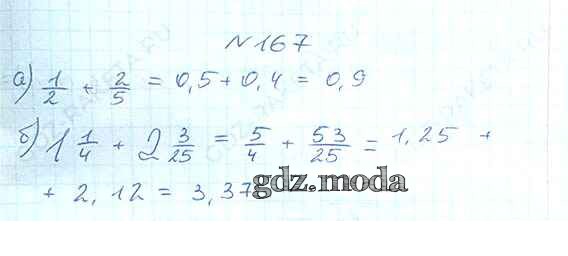 №167
а) 1/2 + 2/5 = 0,5 + 0,4 = 0,9
б) 1 1/4 + 2 3/25 = 5/4 + 53/25 = 1,25 +
+ 2,12 = 3,37
gdz.moda